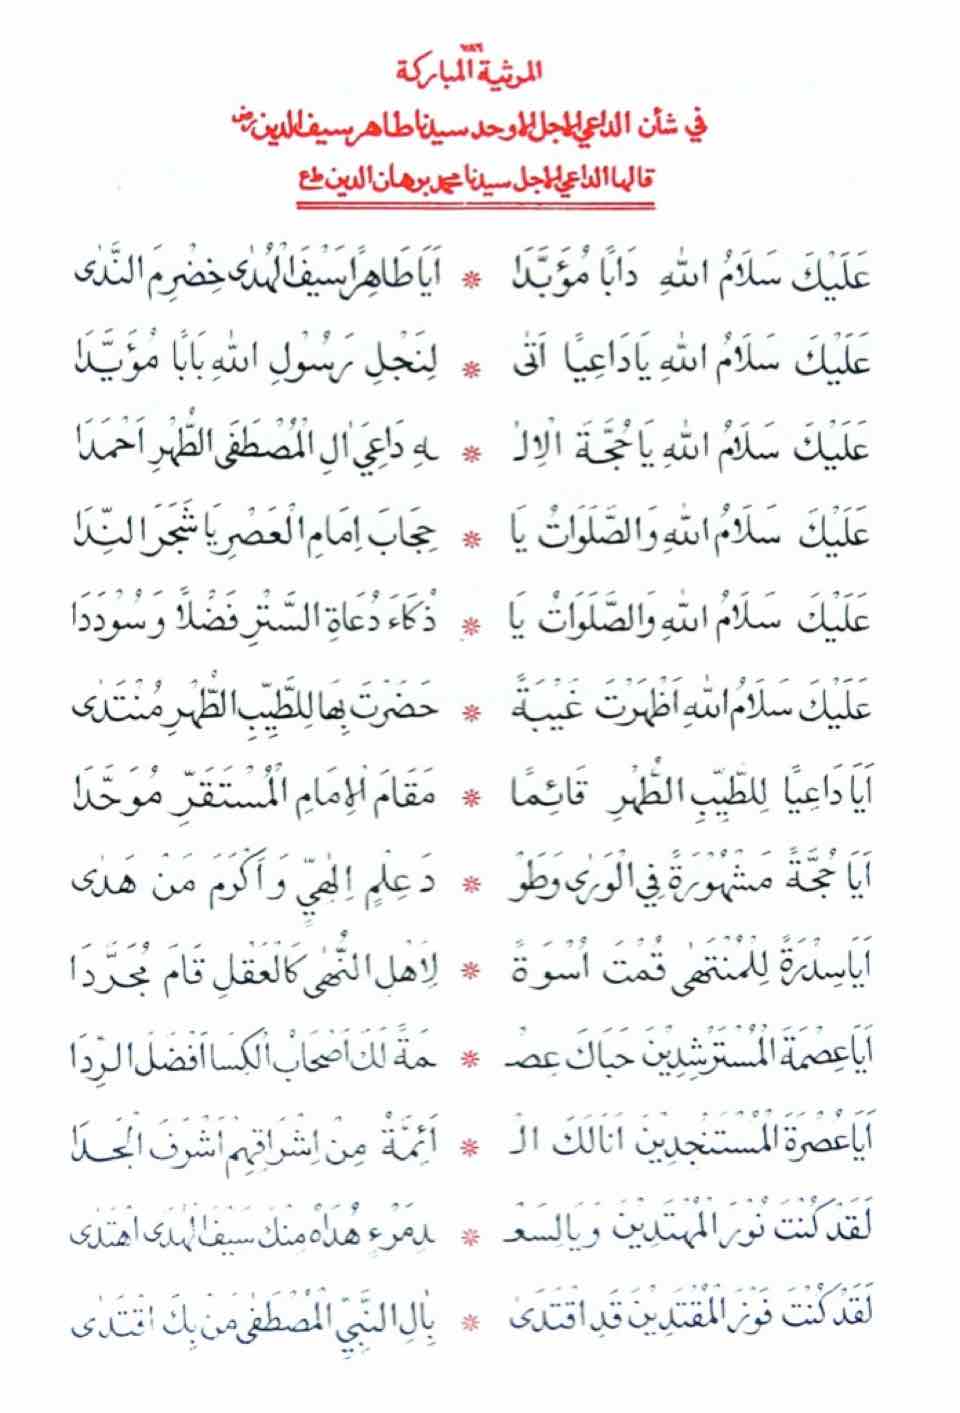 ٧٨٦
المرثية المباركة
في شأن الداعي الاجل الاوحد سيدنا طاهر سيف الدين رض
قالها الداعي الاجل سيدنا محمد برهان الدين طع
عَلَيْكَ سَلَامُ اللهِ دَابًا مُؤَبَّدَا * اَيَا طَاهِرًا سَيْفَ الْهُدٰى خِضْرِمَ النَّدٰى
عَلَيْكَ سَلَامُ اللهِ يَا دَاعِيًا اَتٰى * لِنَجْلِ رَسُوْلِ اللهِ بَابًا مُؤَيَّدَا
عَلَيْكَ سَلَامُ اللهِ يَا حُجَّةَ الْاِلٰـ * ـهِ دَاعِيَ اٰلِ الْمُصْطَفَى الطُّهْرِ اَحْمَدَا
عَلَيْكَ سَلَامُ اللهِ وَالصَّلَوَاتُ يَا * حِجَابَ اِمَامِ الْعَصْرِ يَا شَجَرَ النِّدَا
عَلَيْكَ سَلَامُ اللهِ وَالصَّلَوَاتُ يَا * ذُكَاءَ دُعَاةِ السَّتْرِ فَضْلًا وَسُوْدَدَا
عَلَيْكَ سَلَامُ اللهِ اَظْهَرْتَ غَيْبَةً * حَضَرْتَ بِهَا لِلطَّيِّبِ الطُّهْرِ مُنْتَدٰى
اَيَا دَاعِيًا لِلطَّيِّبِ الطُّهْرِ قَائِمًا * مَقَامَ الْاِمَامِ الْمُسْتَقَرِّ مُوَحَّدَا
اَيَا حُجَّةً مَشْهُوْرَةً فِي الْوَرٰى وَطَوْ * دَ عِلْمٍ اِلٰهِيٍّ وَاَكْرَمَ مَنْ هَدٰى
اَيَا سِدْرَةً لِلْمُنْتَهٰى قُمْتَ اُسْوَةً * لِاَهْلِ النُّهٰى كَالْعَقْلِ قَامَ مُجَرَّدَا
اَيَا عِصْمَةَ الْمُسْتَرْشِدِيْنَ حَبَاكَ عِصْـ * ـمَةً لَكَ اَصْحَابُ الْكِسَا اَفْضَلَ الرِّدَا
اَيَا عُصْرَةَ الْمُسْتَنْجِدِيْنَ اَنَالَكَ الْـ * اَئِمَّةُ مِنْ اِشْرَاقِهِمْ اَشْرَفَ الْجَدَا
لَقَدْ كُنْتَ نُوْرَ الْمُهْتَدِيْنَ وَيَالِسَعْـ * ـدِ مَرْءٍ هُدَاهُ مِنْكَ سَيْفَ الْهُدَى اهْتَدٰى
لَقَدْ كُنْتَ فَوْزَ الْمُقْتَدِيْنَ قَدِ اقْتَدٰى * بِاٰلِ النَّبِيِّ الْمُصْطَفٰى مَنْ بِكَ اقْتَدٰى